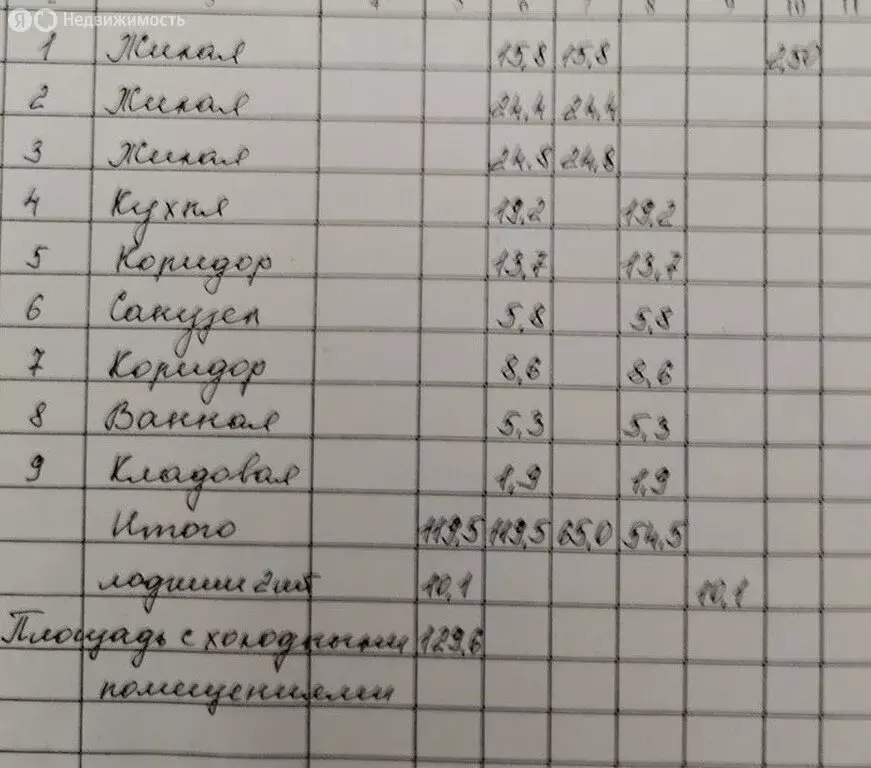 Я Недвижимость
6 7 8 9 10 11
1 Жилая 15,8 15,8 2,50
2 Жилая 24,4 24,4
3 Жилая 24,8 24,8
4 Кухня 19,2 19,2
5 Коридор 13,7 13,7
6 Санузел 5,8 5,8
7 Коридор 8,6 8,6
8 Ванная 5,3 5,3
9 Кладовая 1,9 1,9
Итого 119,5 119,5 65,0 54,5
лоджии 2 шт 10,1 10,1
Площадь с холодными 129,6
помещениями